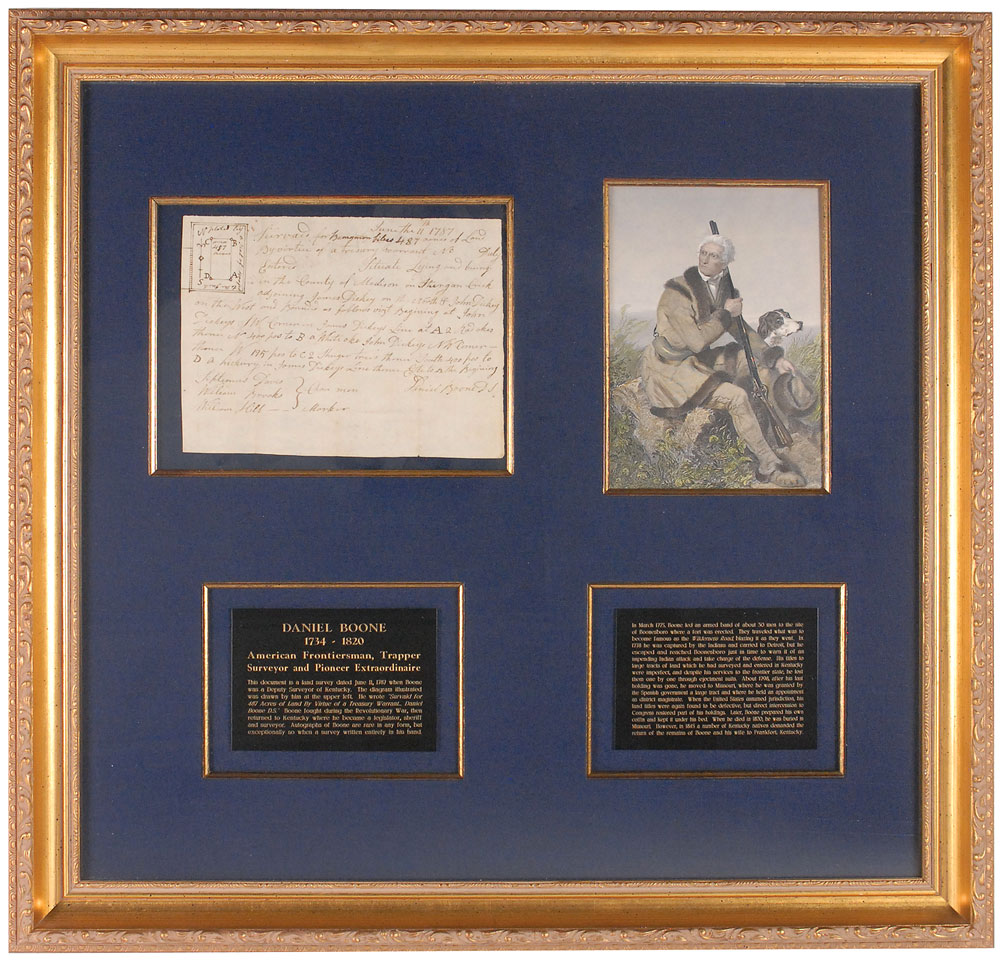 June the 11th 1787
Survaid for 487 acres of Land
By virtue of a tresury warrant No. Duly
Entered Situate Lying and being
in the County of Madison on Creek
adjoining James Dickey on the & John Dickey
on the West and Bounded as follows viz Begining at John
Dickeys Corner James Dickeys Line at A 2
thence No 400 pos to B a White oke John Dickeys Corner
thence pos to C 2 Sugar trees thence South 400 pos to
D a hickory in James Dickeys Line thence to the Begining
Daniel Boone D.S.
William Brooks } Chain men
William Hill - Marker
N
487
B
C
D
A
S
DANIEL BOONE
1734 - 1820
American Frontiersman, Trapper
Surveyor and Pioneer Extraordinaire
This document is a land survey dated June 11, 1787 when Boone
was a Deputy Surveyor of Kentucky. The diagram illustrated
was drawn by him at the upper left. He wrote "Survaid for
487 Acres of Land By Virtue of a Treasury Warrant.. Daniel
Boone D.S." Boone fought during the Revolutionary War, then
returned to Kentucky where he became a legislator, sheriff
and surveyor. Autographs of Boone are rare in any form, but
exceptionally so when a survey written entirely in his hand.
In March 1775, Boone led an armed band of about 30 men to the site
of Boonesboro where a fort was erected. They traveled what was to
become famous as the Wilderness Road, blazing it as they went. In
1778 he was captured by the Indians and carried to Detroit, but he
escaped and reached Boonesboro just in time to warn it of an
impending Indian attack and take charge of the defense. His titles to
large tracts of land which he had surveyed and entered in Kentucky
were imperfect, and despite his services to the frontier state, he lost
them one by one through ejectment suits. About 1798, after his last
holding was gone, he moved to Missouri, where he was granted by
the Spanish government a large tract and where he held an appointment
as district magistrate. When the United States assumed jurisdiction, his
land titles were again found to be defective, but direct intercession to
Congress restored part of his holdings. Later, Boone prepared his own
coffin and kept it under his bed. When he died in 1820, he was buried in
Missouri. However, in 1845 a number of Kentucky natives demanded the
return of the remains of Boone and his wife to Frankfort, Kentucky.